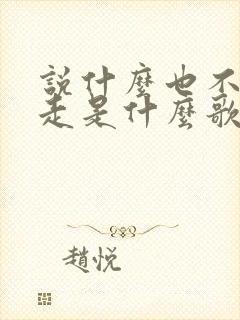 説什麼也不
走是什麼歌
趙悅